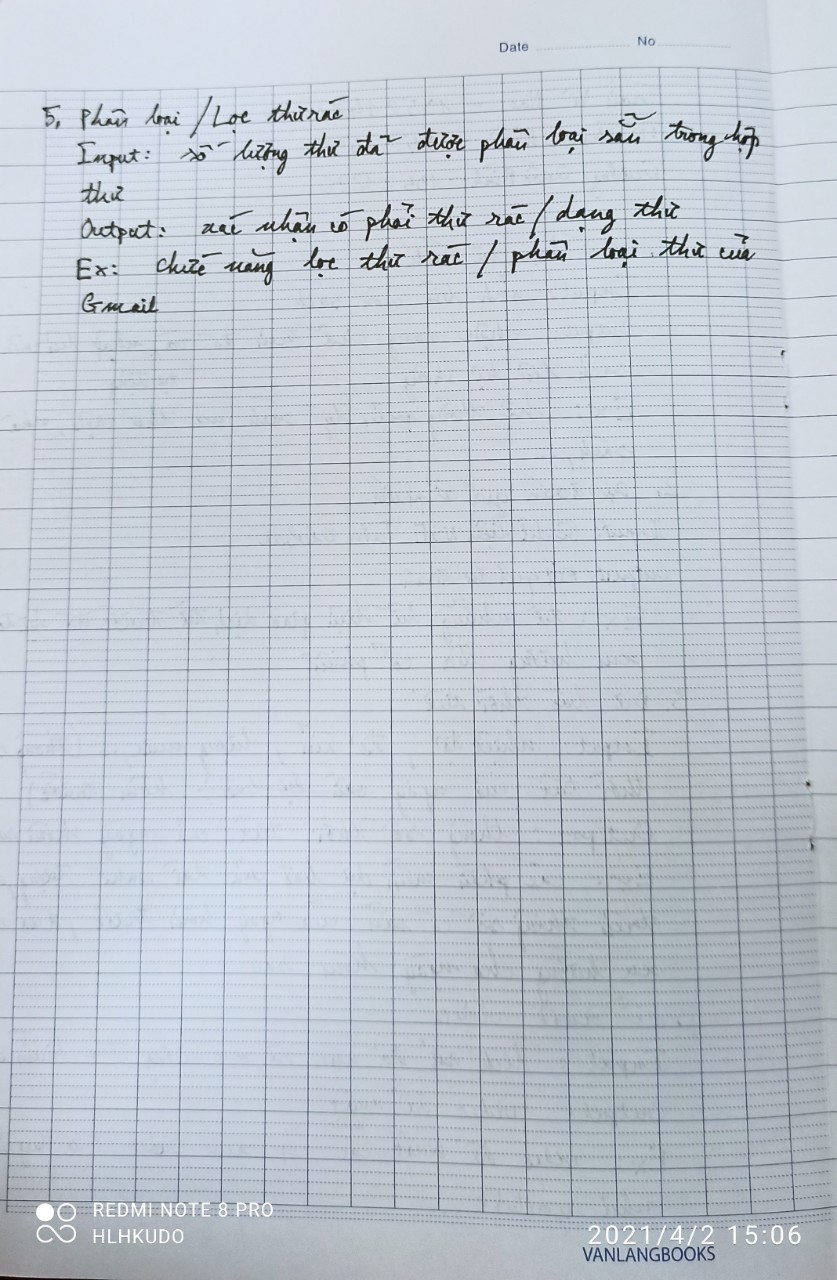 Date No
5, Phân loại / Lọc thư rác
Input: số lượng thư đã được phân loại sẵn trong hộp
thư
Output: xác nhận có phải thư rác / dạng thư
Ex: chức năng lọc thư rác / phân loại thư của
Gmail
REDMI NOTE 8 PRO
HLHKUDO
2021/4/2 15:06
VANLANGBOOKS